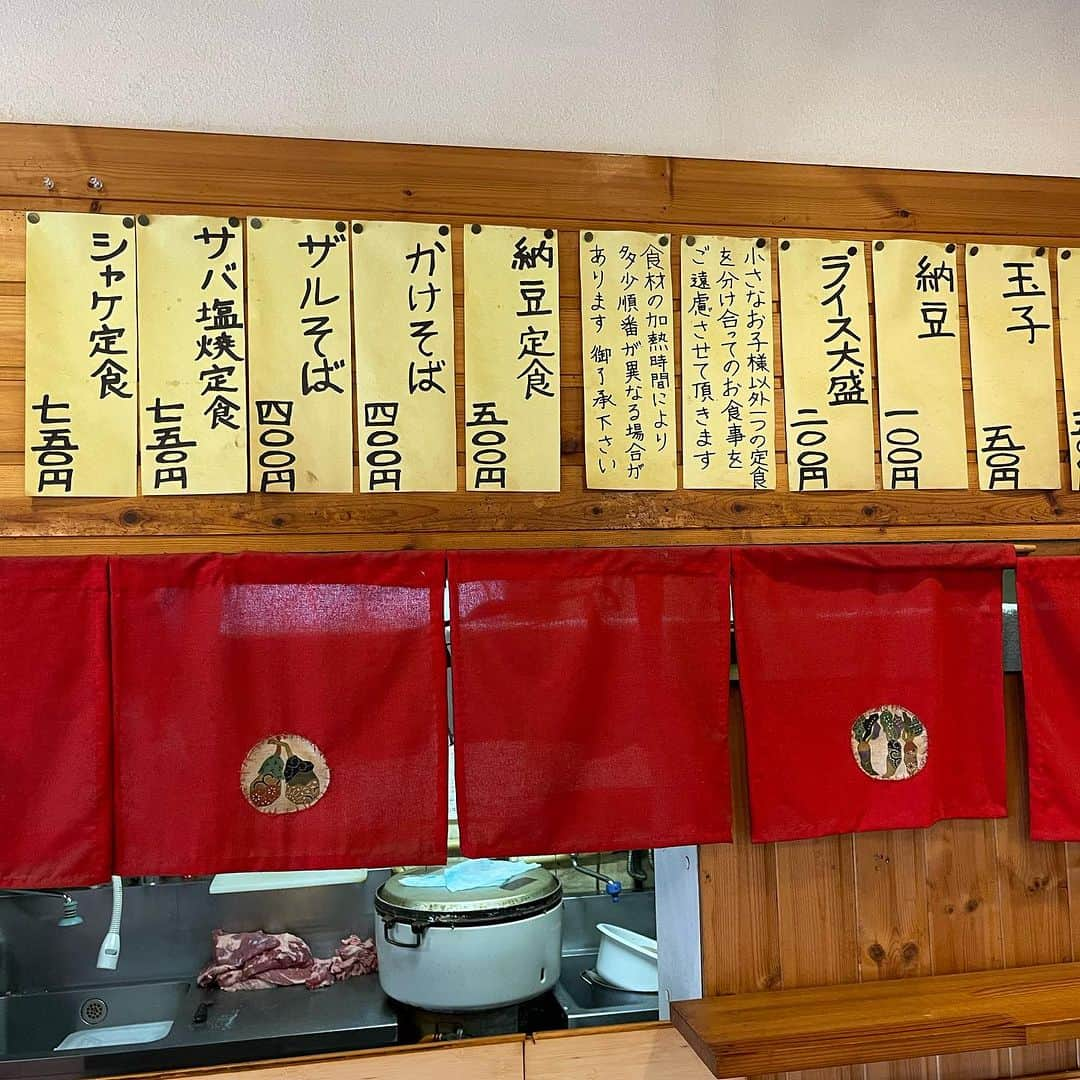 玉子
五〇円
納豆
一〇〇円
ライス大盛
二〇〇円
小さなお子様以外一つの定食
を分け合ってのお食事を
ご遠慮させて頂きます
食材の加熱時間により
多少順番が異なる場合が
あります 御了承下さい
納豆定食
五〇〇円
かけそば
四〇〇円
ザルそば
四〇〇円
サバ塩焼定食
七五〇円
シャケ定食
七五〇円